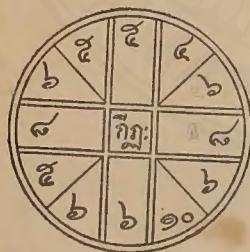 ๕ ๕ ๔
๖ ๖
๘ กีฏะ ๘
๕ ๖
๖ ๖ ๑๐